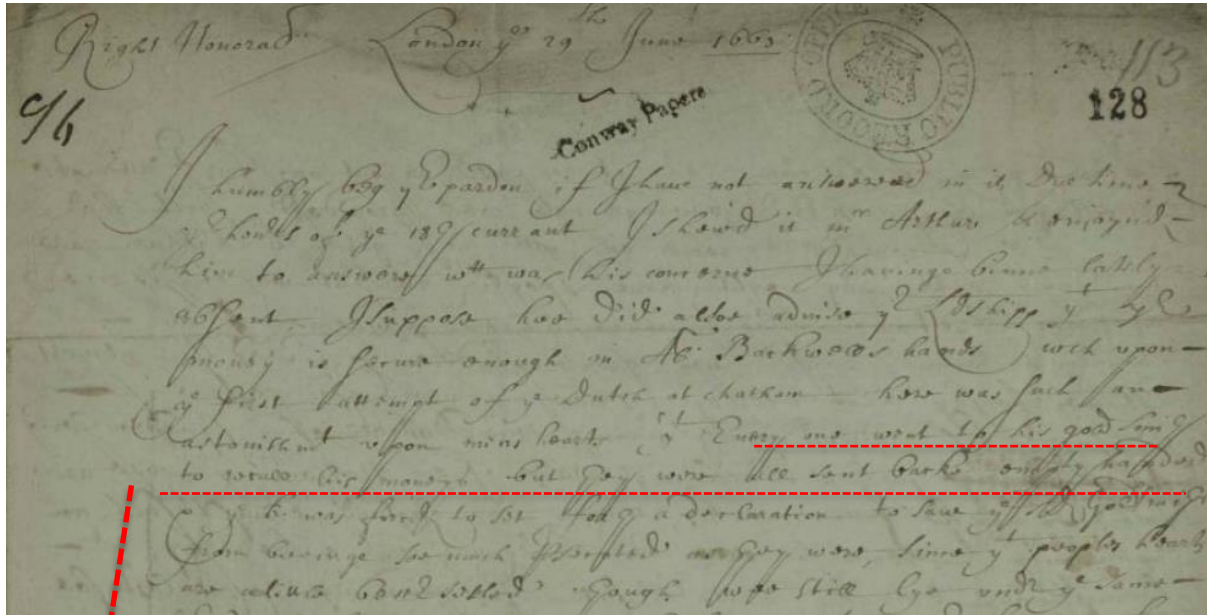 Right Honorad London ye 29 th June 1667
PUBLIC RECORD OFFICE
113
96
Conway Papers
128
I humbly beg yr pardon if I haue not answered in its due time
honrs of ye 18th currant I shewd it mr Arthur & enjoynd
him to answere wt was his concerne I hauinge binne lately
absent. I suppose hee did alsoe aduise yr Ldshipp yt ye
money is secure enough in Ald: Backwells hands wch vpon
ye first attempt of ye Dutch at chatham here was such an
astonishmt vpon mens hearts yt Euery one went to his gold smith
to recall his moneys but they were all sent backe empty handed
& ye K was forcd to set forth a declaration to saue ye sd Goldsmiths
from beeinge soe much persecuted as they were, since yt peoples hearts
are a little better setled though wee still lye undr ye same